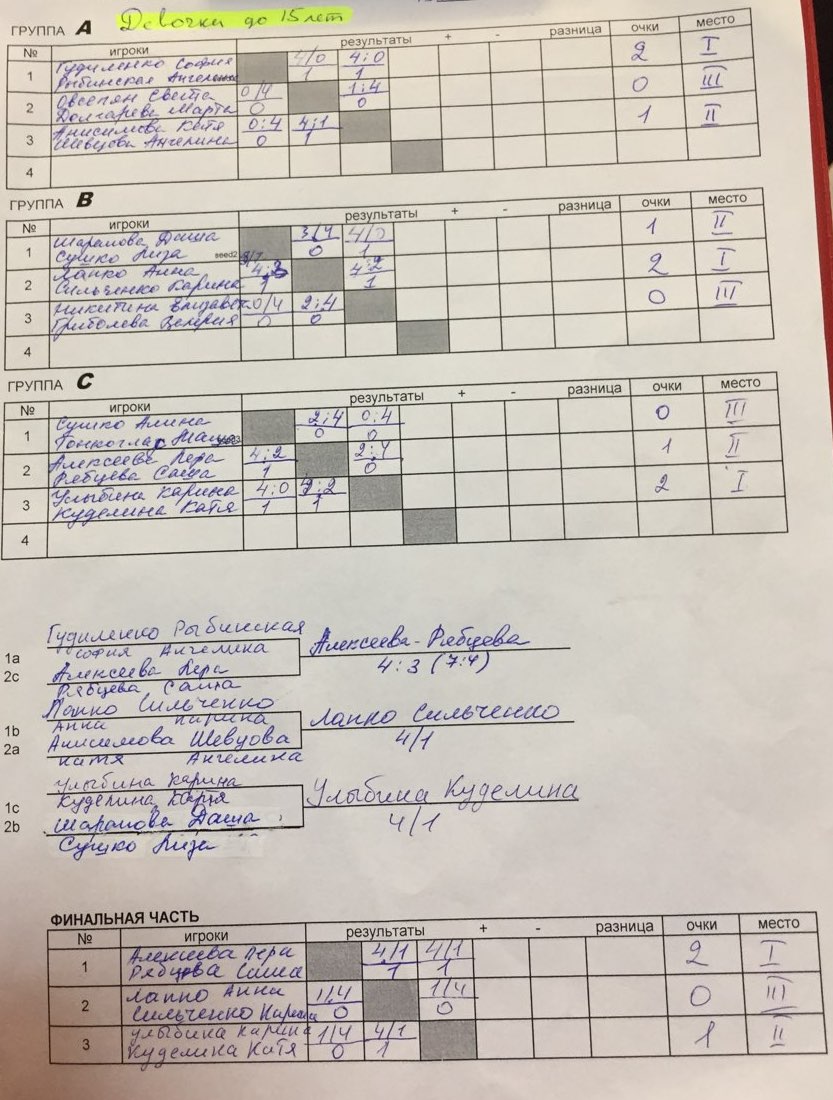 ГРУППА A Девочки до 15 лет
№ игроки результаты + - разница очки место
1 Гудиленко София 4/0 4:0 2 I
Рыбинская Ангелина 1 1
2 Овсепян Света 0/4 1:4 0 III
Долгарева Марта 0 0
3 Анисимова Катя 0:4 4:1 1 II
Шевцова Ангелина 0 1
4
ГРУППА B
№ игроки результаты + - разница очки место
1 Шарапова Даша 3/4 4/0 1 II
Сушко Лиза seed2 0 1
2 Лапко Анна 4:3 4:2 2 I
Сильченко Карина 1 1
3 Никитина 0/4 2:4 0 III
0 0
4
ГРУППА C
№ игроки результаты + - разница очки место
1 Сушко Алина 2:4 0:4 0 III
0 0
2 Алексеева Лера 4:2 2:4 1 II
Рябцева Саша 1 0
3 Улыбина Карина 4:0 4:2 2 I
Куделина Катя 1 1
4
Гудиленко Рыбинская
1a София Ангелина
Алексеева-Рябцева
2c Алексеева Лера
4:3 (7:4)
Рябцева Саша
Лапко Сильченко
1b Анна Карина
Лапко Сильченко
2a Анисимова Шевцова
4/1
Катя Ангелина
Улыбина Карина
1c Куделина Катя
Улыбина Куделина
2b Шарапова Даша
4/1
Сушко Лиза
ФИНАЛЬНАЯ ЧАСТЬ
№ игроки результаты + - разница очки место
1 Алексеева Лера 4/1 4/1 2 I
Рябцева Саша 1 1
2 Лапко Анна 1/4 1/4 0 III
Сильченко Карина 0 0
3 Улыбина Карина 1/4 4/1 1 II
Куделина Катя 0 1